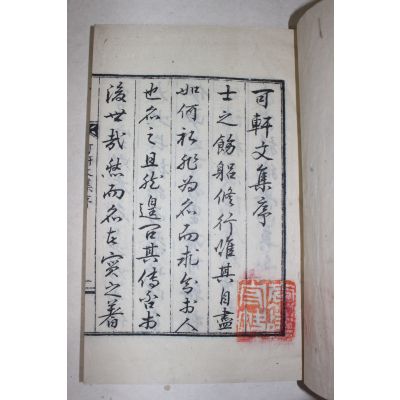 可軒文集序
士之飭躬修行雖其自盡
如何初非為名而求知於人
也名之且然遑曰其傳否於
後世哉然而名者實之著
可軒文集序